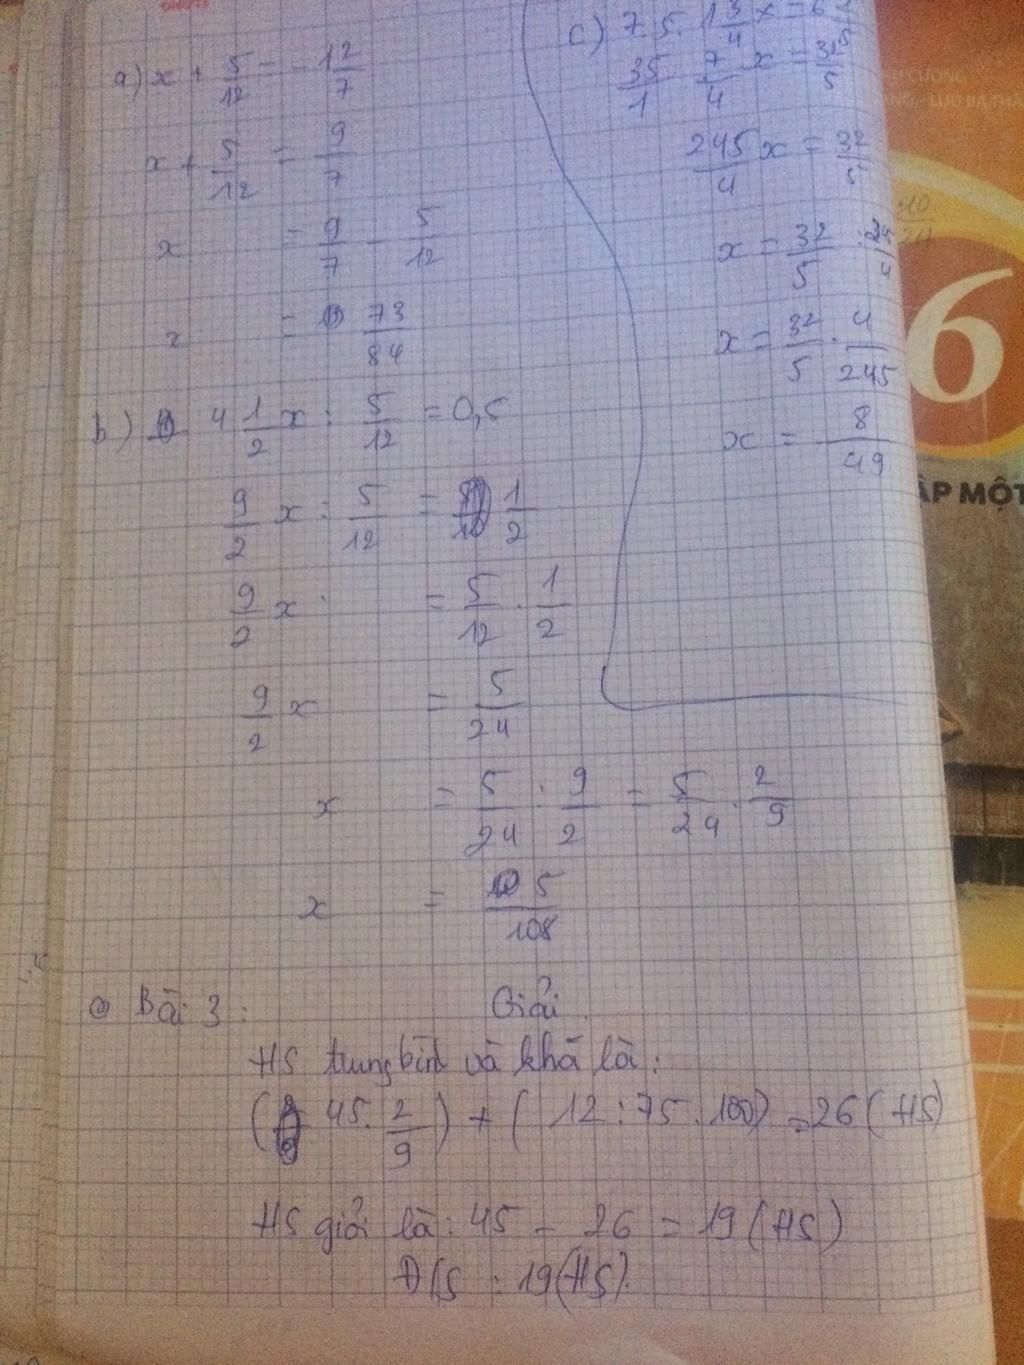 a) x + 5/12 = - 12/7
x + 5/12 = 9/7
x = 9/7 - 5/12
x = 73/84
b) 4 1/2 x : 5/12 = 0,5
9/2 x : 5/12 = 1/2
9/2 x : = 5/12 . 1/2
9/2 x = 5/24
x = 5/24 : 9/2 = 5/24 . 2/9
x = 5/108
c) 7.5. 1 3/4 x = 6
35/1 7/4 x = 32/5
245/4 x = 32/5
x = 32/5 :
x = 32/5 . 4/245
x = 8/49
Bài 3: Giải
HS trung bình và khá là:
(45. 2/9) + (12 : 75 . 100) = 26 (HS)
HS giỏi là: 45 - 26 = 19 (HS)
Đ/S : 19 (HS).
6
ẬP MỘT